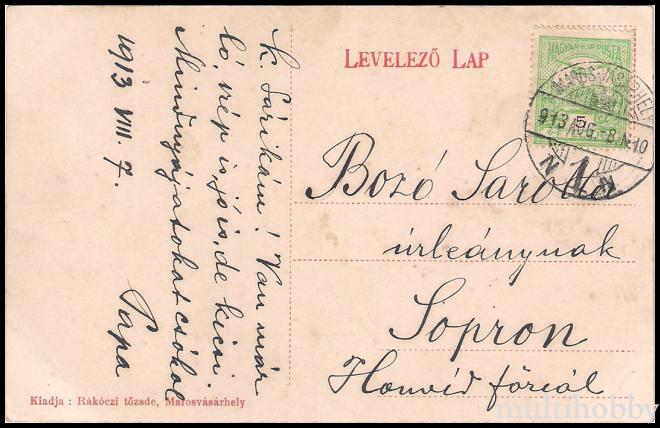 LEVELEZŐ LAP
MAGYAR KIR. POSTA
MAROS-VÁSÁRHELY
913 AUG. -8. N. 10
5
K. Sárikám! Van már
ló, szép is, jó is, de kicsi.
Mindnyájatokat csókol
Papa
1913 VIII. 7.
Bozó Sarolta
úrleánynak
Sopron
Honvéd főreál
Kiadja : Rákóczi tőzsde, Marosvásárhely
multihobby